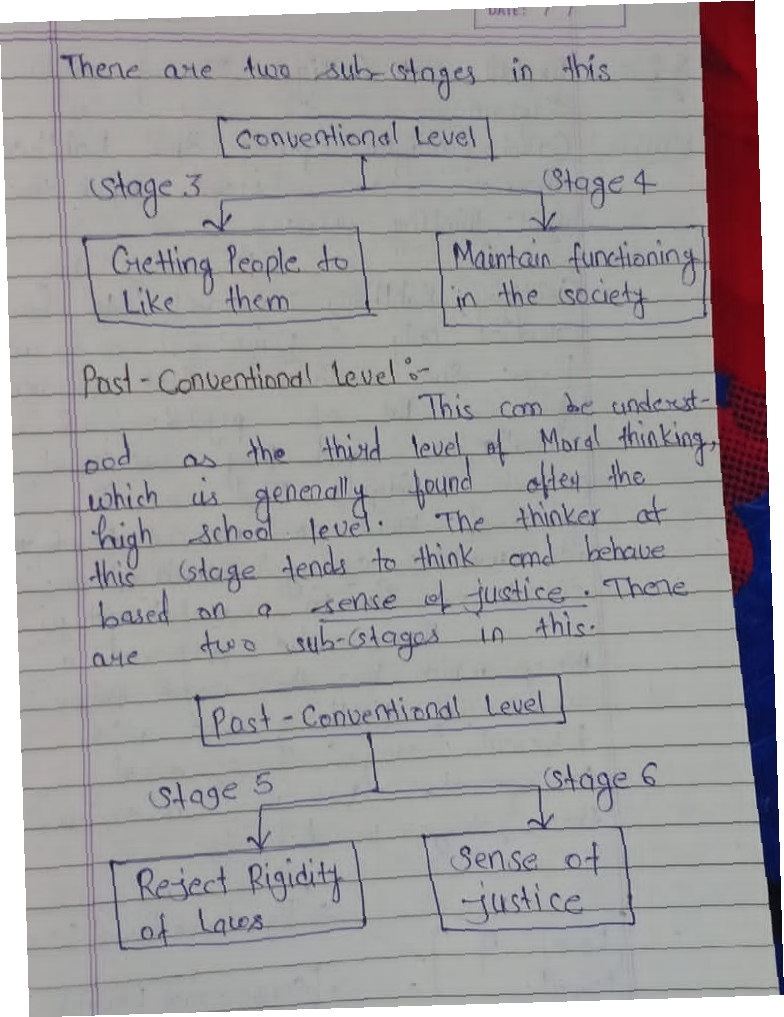 DATE: / /
There are two sub-stages in this
Conventional Level
Stage 3
Stage 4
Getting People to
Like them
Maintain functioning
in the society
Post-Conventional Level :-
This can be underst-
ood as the third level of Moral thinking,
which is generally found after the
high school level. The thinker at
this stage tends to think and behave
based on a sense of justice. There
are two sub-stages in this.
Post-Conventional Level
Stage 5
Stage 6
Reject Rigidity
of Laws
Sense of
justice